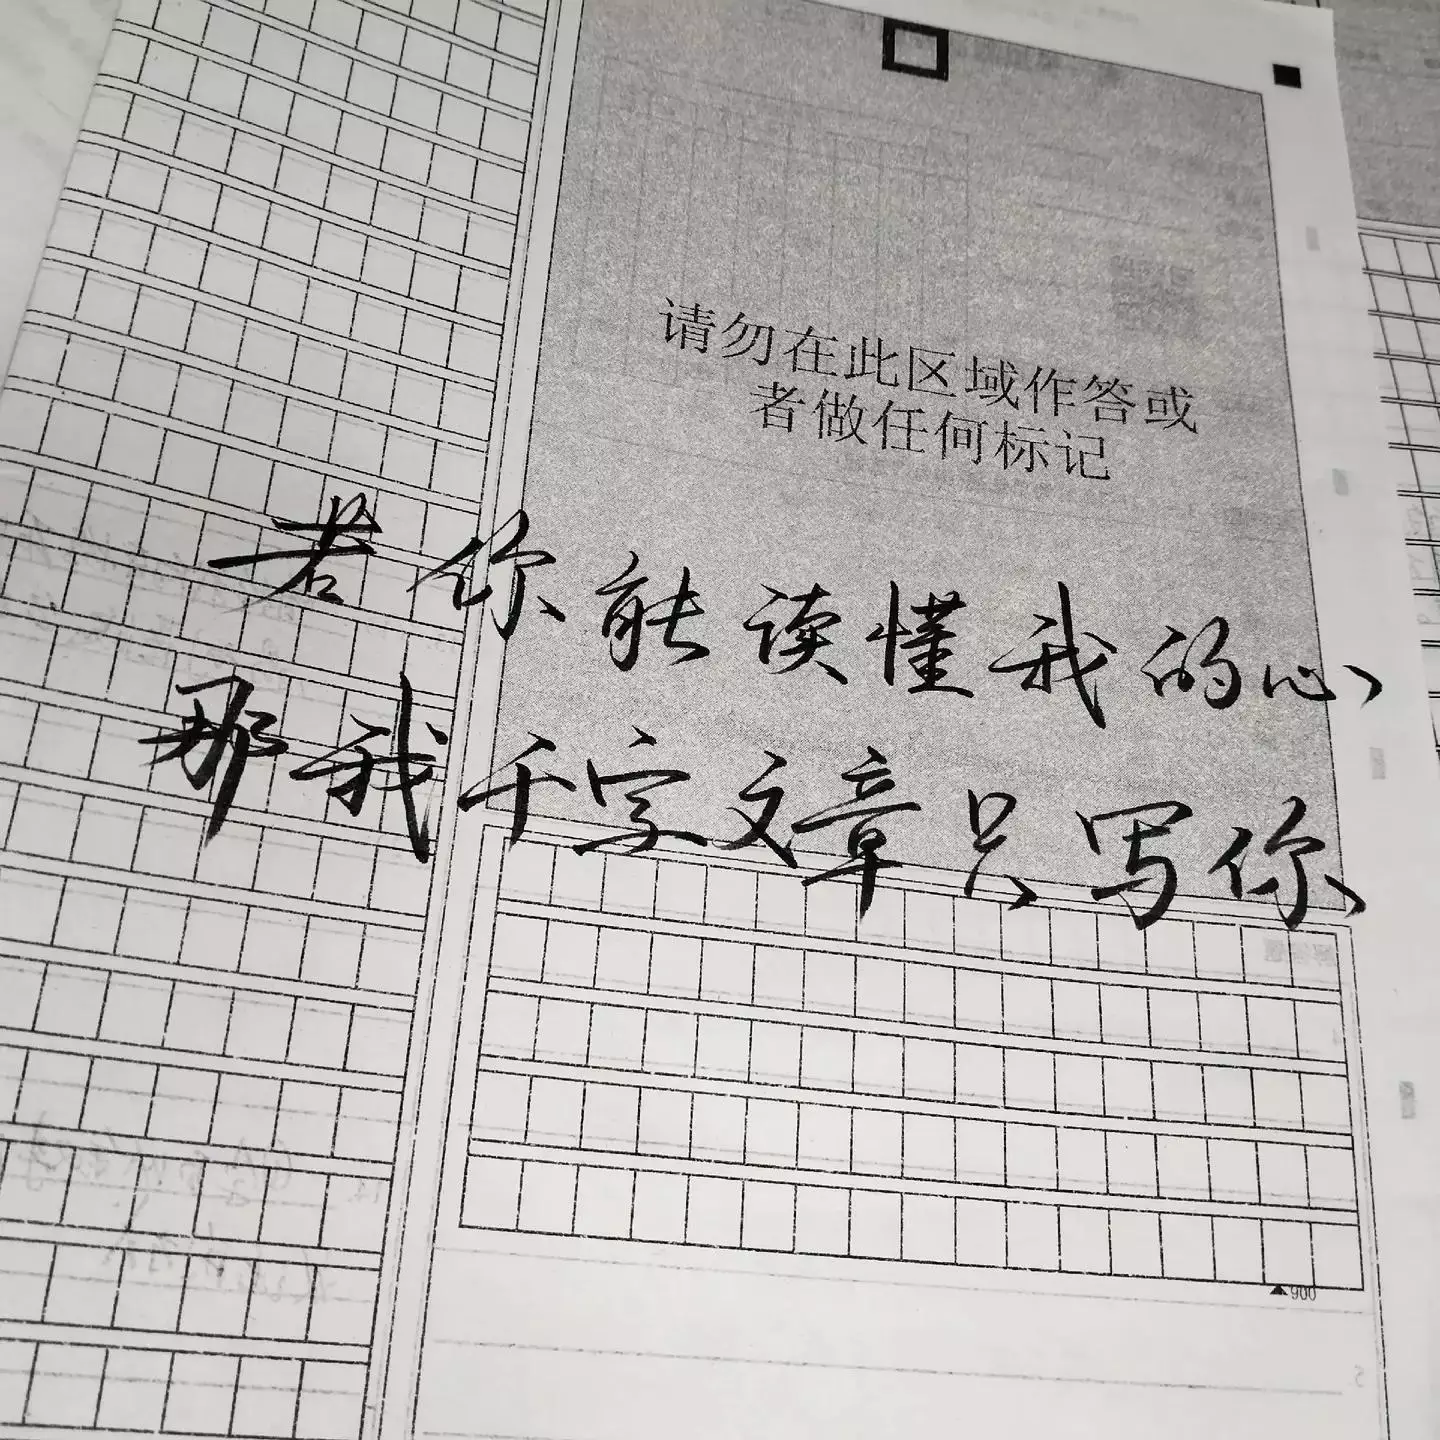 请勿在此区域作答或
者做任何标记
若你能读懂我的心
那我千字文章只写你
▲900